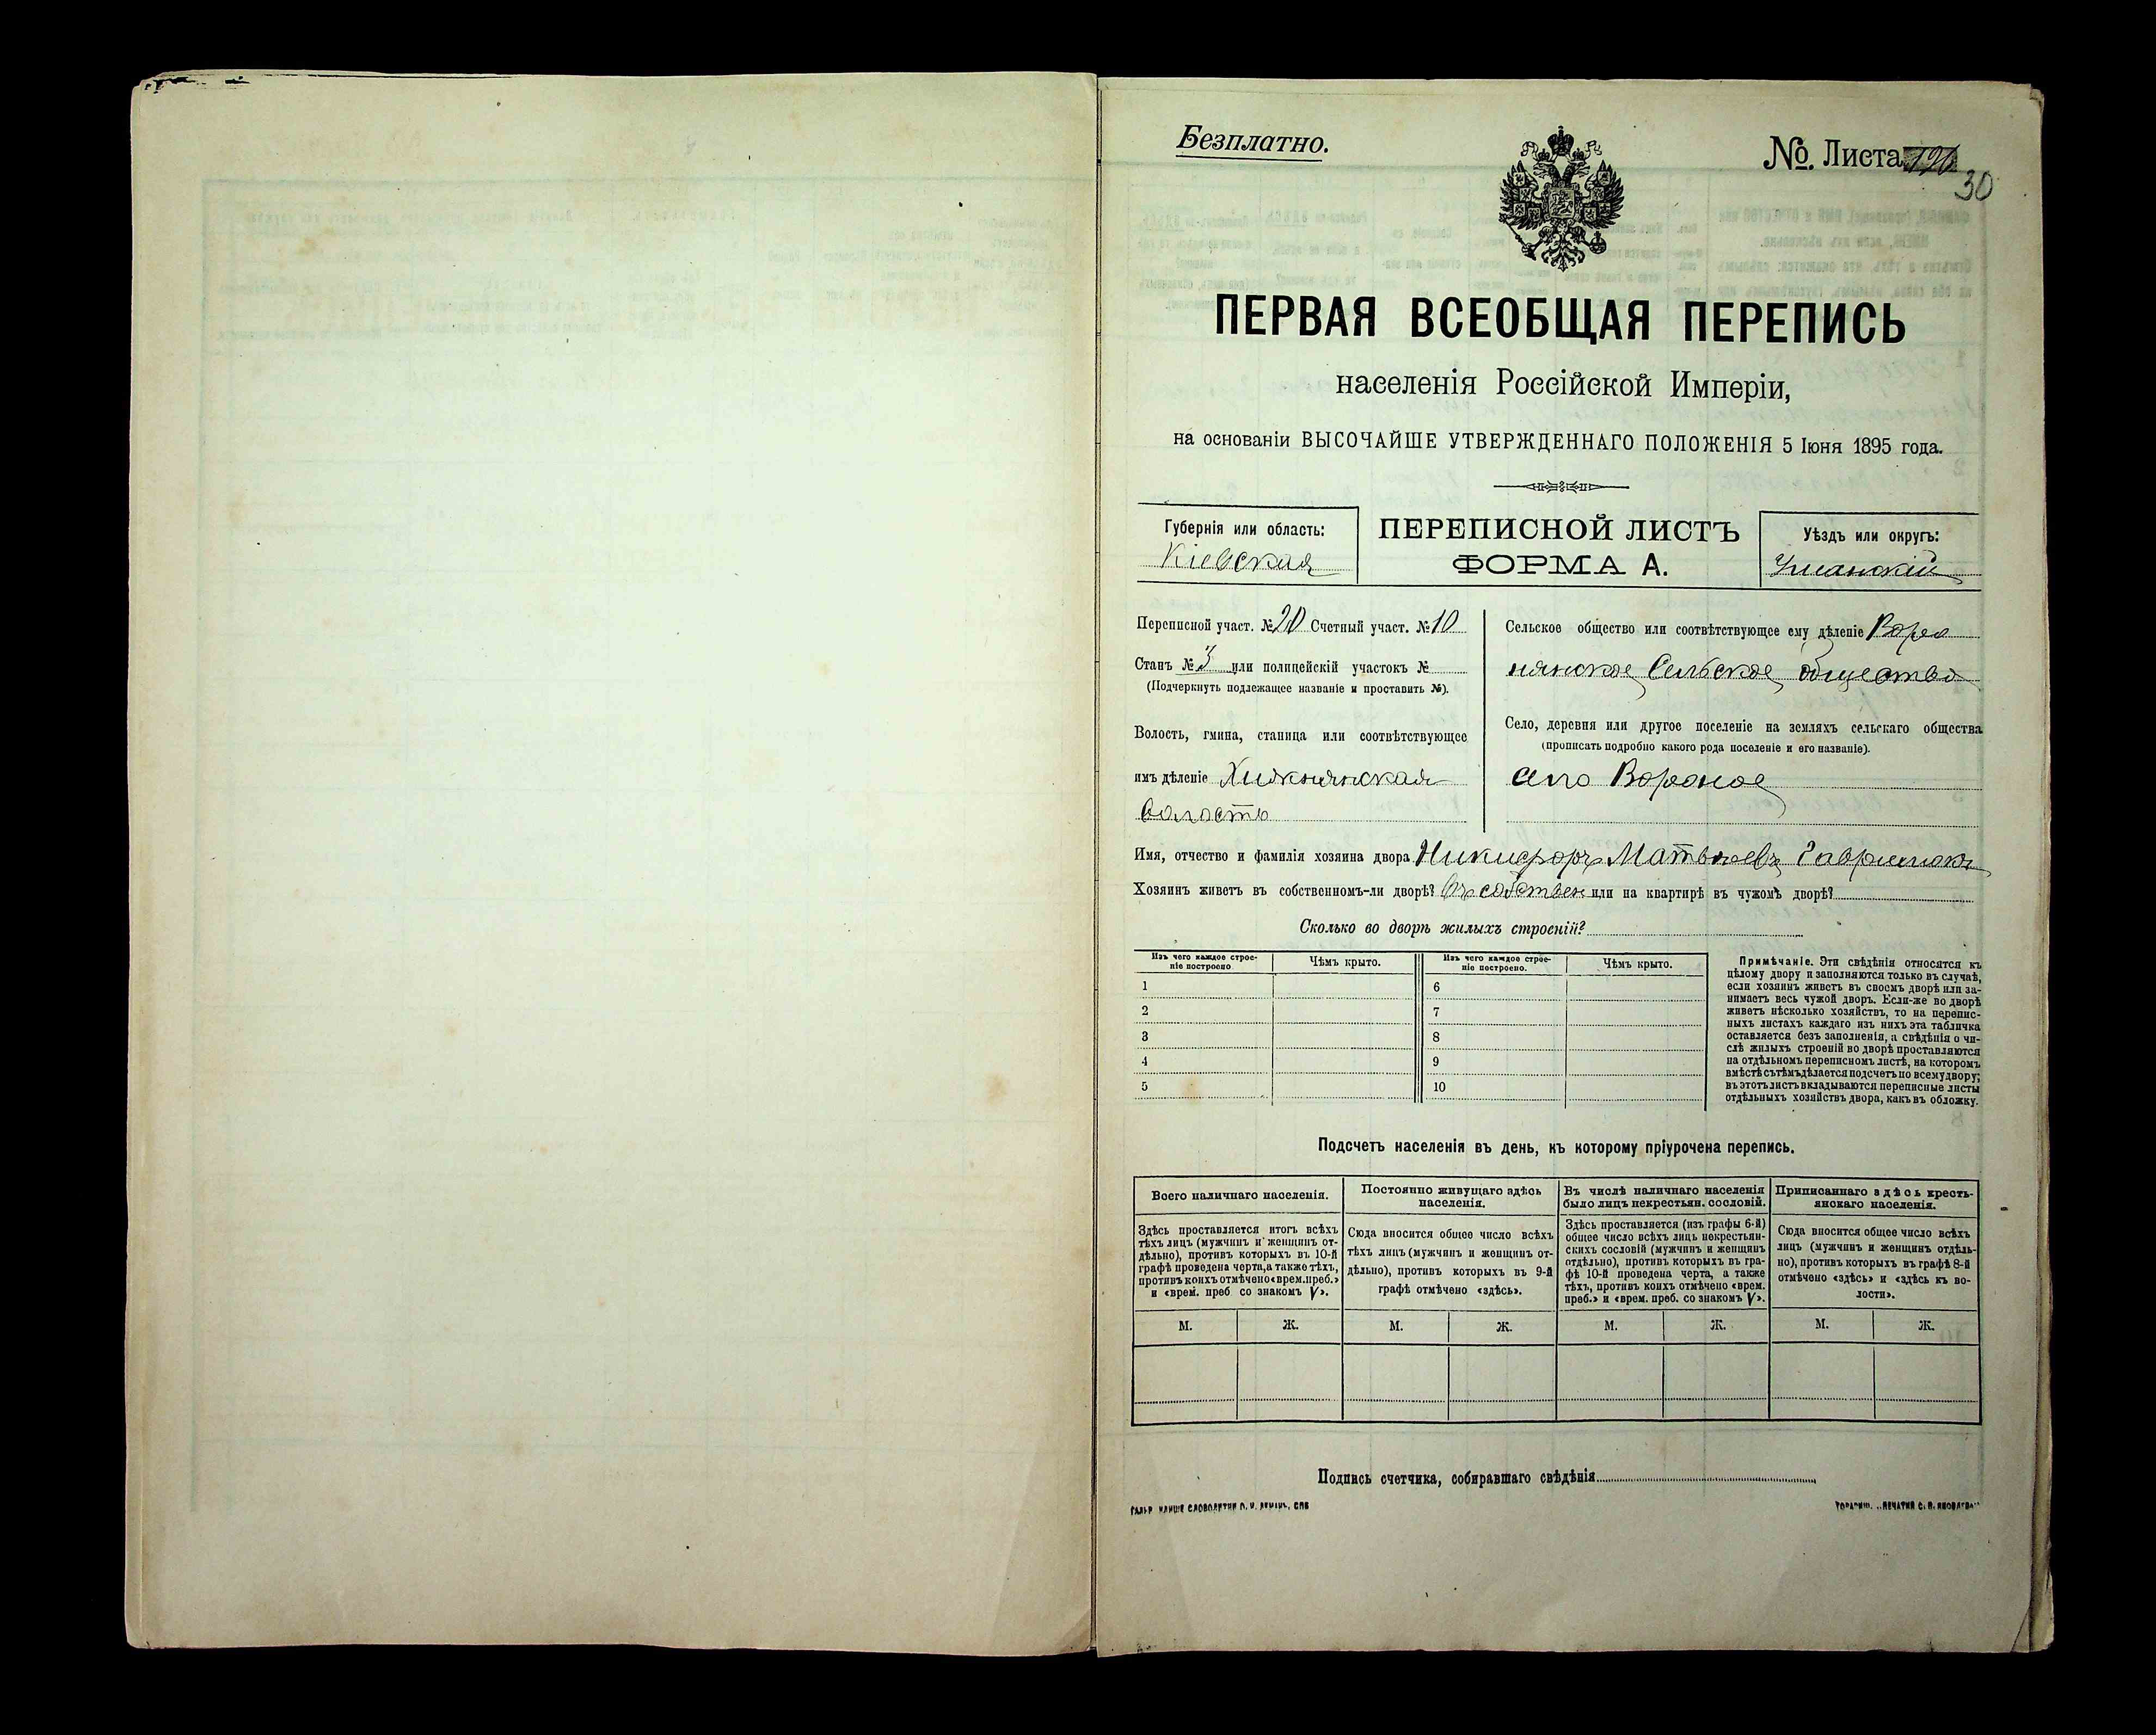 Безплатно.
№. Листа
30
ПЕРВАЯ ВСЕОБЩАЯ ПЕРЕПИСЬ
населенія Россійской Имперіи,
на основаніи ВЫСОЧАЙШЕ УТВЕРЖДЕННАГО ПОЛОЖЕНІЯ 5 Іюня 1895 года.
Губернія или область:
Кіевская
ПЕРЕПИСНОЙ ЛИСТЪ
ФОРМА А.
Уѣздъ или округъ:
Уманскій
Переписной участ. № 20 Счетный участ. № 10
Станъ № 3 или полицейскій участокъ №
(Подчеркнуть подлежащее названіе и проставить №).
Волость, гмина, станица или соотвѣтствующее
имъ дѣленіе Хижнянская
волость
Сельское общество или соотвѣтствующее ему дѣленіе Воро
нянское Сельское общество
Село, деревня или другое поселеніе на земляхъ сельскаго общества
(прописать подробно какого рода поселеніе и его названіе).
село Вороное
Имя, отчество и фамилія хозяина двора Никифоръ Матвѣевъ Гаврилюкъ
Хозяинъ живетъ въ собственномъ-ли дворѣ? Въ собствен или на квартирѣ въ чужомъ дворѣ?
Сколько во дворѣ жилыхъ строеній?
Изъ чего каждое строе-
ніе построено
Чѣмъ крыто.
Изъ чего каждое строе-
ніе построено.
Чѣмъ крыто.
1
2
3
4
5
6
7
8
9
10
Примѣчаніе. Эти свѣдѣнія относятся къ
цѣлому двору и заполняются только въ случаѣ,
если хозяинъ живетъ въ своемъ дворѣ или за-
нимаетъ весь чужой дворъ. Если-же во дворѣ
живетъ нѣсколько хозяйствъ, то на перепис-
ныхъ листахъ каждаго изъ нихъ эта табличка
оставляется безъ заполненія, а свѣдѣнія о чи-
слѣ жилыхъ строеній во дворѣ проставляются
на отдѣльномъ переписномъ листѣ, на которомъ
вмѣстѣ съ тѣмъ дѣлается подсчетъ по всему двору;
въ этотъ листъ вкладываются переписные листы
отдѣльныхъ хозяйствъ двора, какъ въ обложку.
Подсчетъ населенія въ день, къ которому пріурочена перепись.
Всего наличнаго населенія.
Постоянно живущаго здѣсь
населенія.
Въ числѣ наличнаго населенія
было лицъ некрестьян. сословій.
Приписаннаго здѣсь кресть-
янскаго населенія.
Здѣсь проставляется итогъ всѣхъ
тѣхъ лицъ (мужчинъ и женщинъ от-
дѣльно), противъ которыхъ въ 10-й
графѣ проведена черта, а также тѣхъ,
противъ коихъ отмѣчено «врем. преб.»
и «врем. преб со знакомъ V».
Сюда вносится общее число всѣхъ
тѣхъ лицъ (мужчинъ и женщинъ от-
дѣльно), противъ которыхъ въ 9-й
графѣ отмѣчено «здѣсь».
Здѣсь проставляется (изъ графы 6-й)
общее число всѣхъ лицъ некрестьян-
скихъ сословій (мужчинъ и женщинъ
отдѣльно), противъ которыхъ въ гра-
фѣ 10-й проведена черта, а также
тѣхъ, противъ коихъ отмѣчено «врем.
преб.» и «врем. преб. со знакомъ V».
Сюда вносится общее число всѣхъ
лицъ (мужчинъ и женщинъ отдѣль-
но), противъ которыхъ въ графѣ 8-й
отмѣчено «здѣсь» и «здѣсь къ во-
лости».
М. Ж. М. Ж. М. Ж. М. Ж.
Подпись счетчика, собиравшаго свѣдѣнія